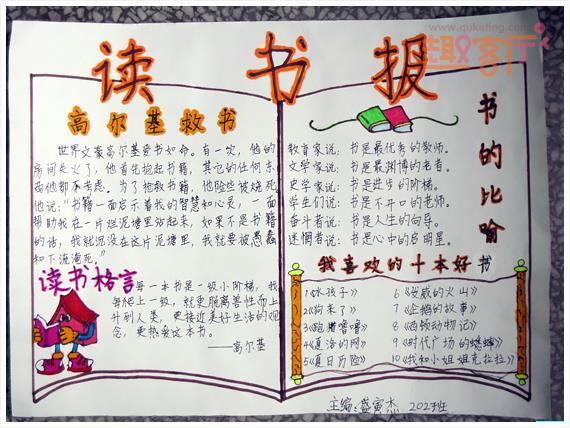 www.quketing.com
趣客厅
读书报
高尔基救书
世界文豪高尔基爱书如命。有一次，他的
房间失火了，他首先抱起书籍，其它的任何东
西他都不考虑。为了抢救书籍，他险些被烧死
他说:“书籍一面启示着我的智慧和心灵，一面
帮助我在一片烂泥塘里站起来，如果不是书籍
的话，我就沉没在这片泥塘里，我就要被愚蠢
和下流淹死。”
读书格言
每一本书是一级小阶梯，我
每爬上一级，就更脱离兽性而上
升到人类，更接近美好生活的观
念，更热爱这本书。
——高尔基
书的比喻
教育家说：书是最优秀的教师。
文学家说：书是最渊博的老者。
史学家说：书是进步的阶梯。
学生们说：书是不开口的老师。
奋斗者说：书是人生的向导。
迷惘者说：书是心中的启明星。
我喜欢的十本好书
1《水孩子》 6《发威的火山》
2《狗来了》 7《企鹅的故事》
3 8《西顿动物记》
4《夏洛的网》 9《时代广场的蟋蟀》
5《夏日历险》 10《我和小姐姐克拉拉》
主编:盛寅杰 202班